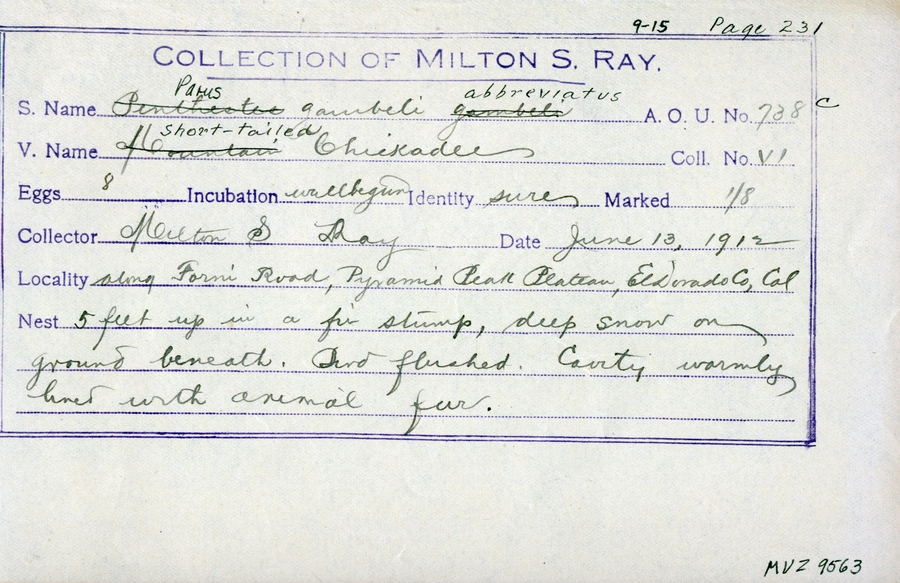 9-15 Page 231
COLLECTION OF MILTON S. RAY.
Parus abbreviatus
S. Name Penthestes gambeli gambeli A. O. U. No. 738 c
short-tailed
V. Name Mountain Chickadee Coll. No. VI
Eggs 8 Incubation well begun Identity sure Marked 1/8
Collector Milton S Ray Date June 13, 1912
Locality along Forni Road, Pyramid Peak Plateau, El Dorado Co, Cal
Nest 5 feet up in a fir stump, deep snow on
ground beneath. Bird flushed. Cavity warmly
lined with animal fur.
MVZ 9563